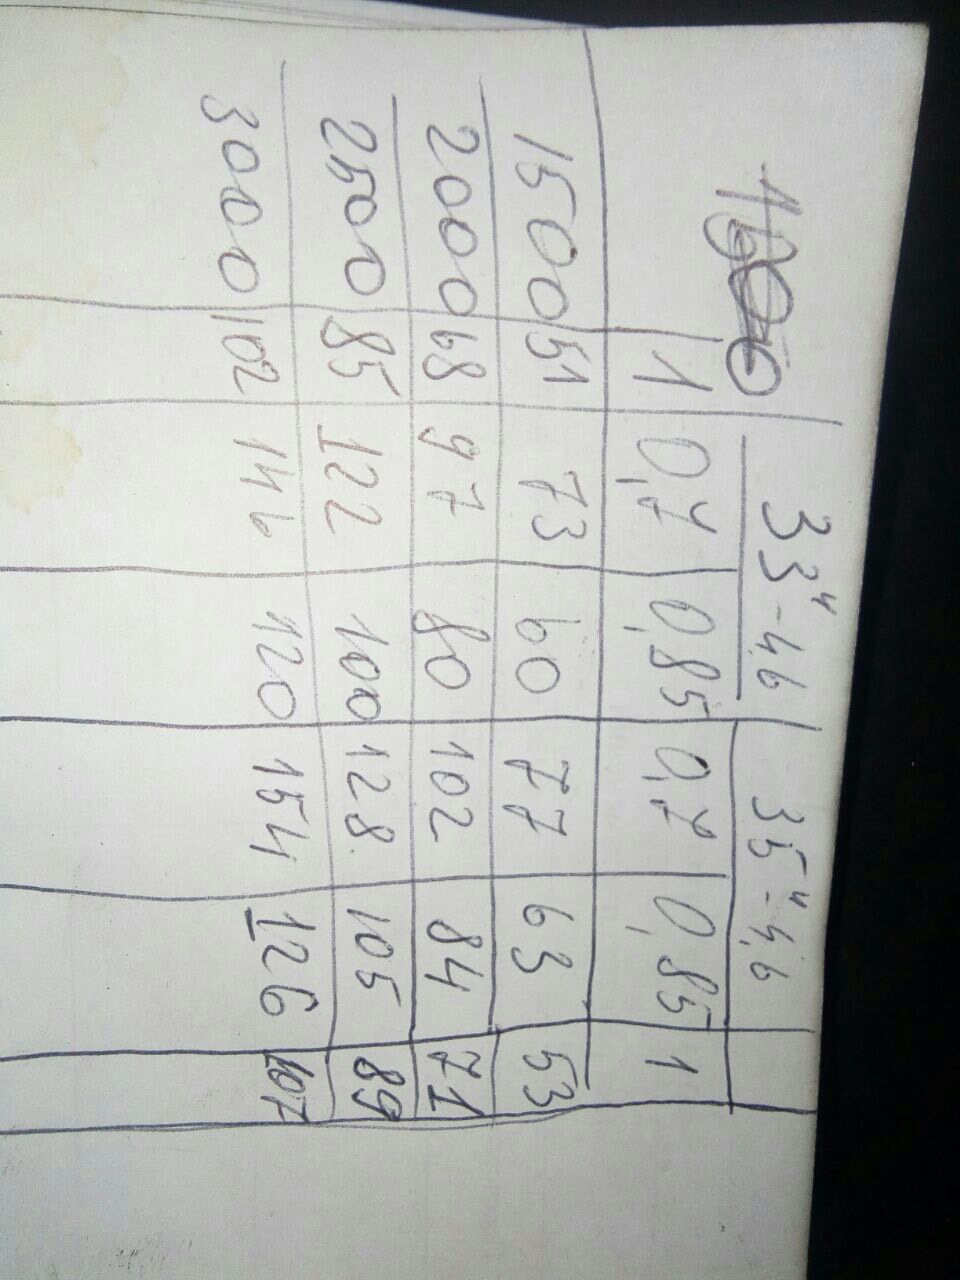 33" - 4,6 35" - 4,6
1 0,7 0,85 0,7 0,85 1
1500 51 73 60 77 63 53
2000 68 97 80 102 84 71
2500 85 122 100 128. 105 89
3000 102 146 120 154 126 107